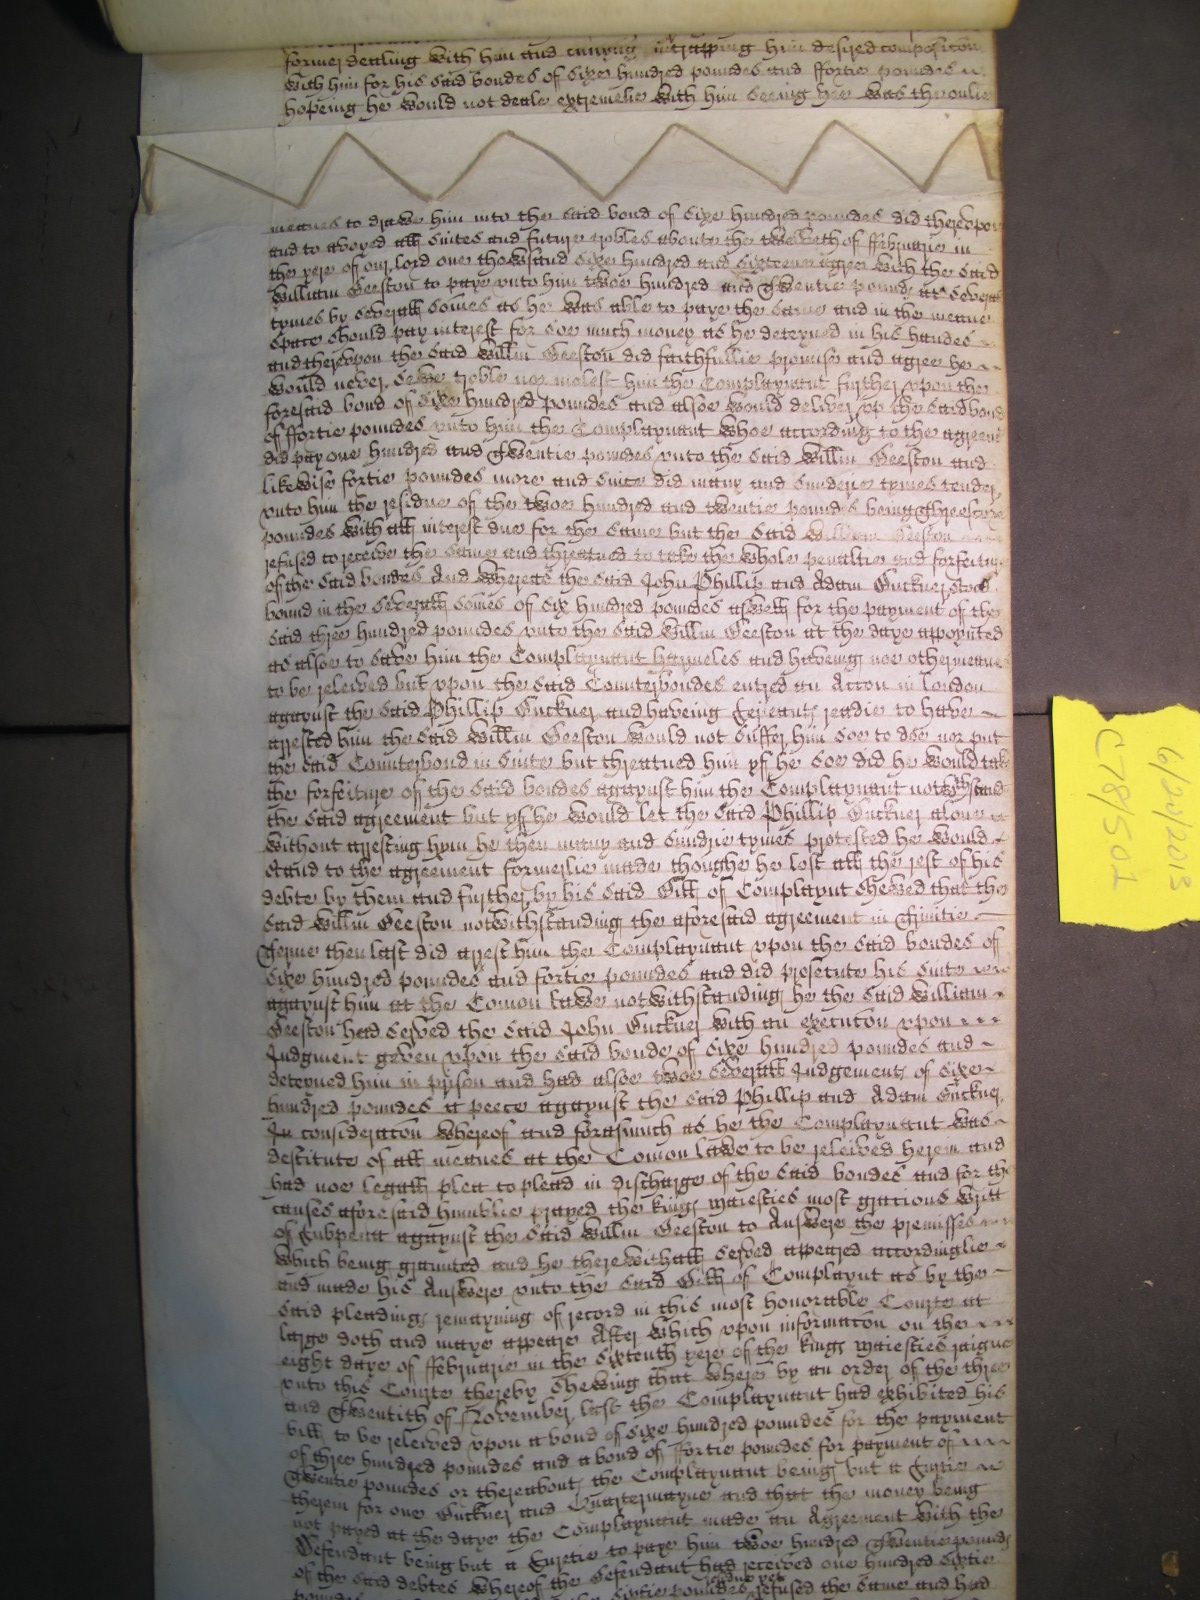 former dealing with him and cunyng intrapping him desired composicon
with him for his said bondes of sixe hundred poundes and ffortie poundes
hopeing he would not deale extremelie with him seeing hee was throulie
meanes to drawe him into the said bond of sixe hundred poundes did thereupon
and to avoyed all suites and future trobles aboute the twelveth of ffebruarie in
the yere of our lord one thowsand sixe hundred and sixteene agree with the said
William Geeston to paye unto him twoe hundred and Twentie pounds at severall
tymes by severall somes as he was able to paye the same and in the meane
space should pay interest for soe much money as he deteyned in his handes
and thereupon the said Willm Geeston did faithfullie promise and agree he
would never sewe troble nor molest him the Complaynant further upon the
foresaid bond of sixe hundred poundes and alsoe would deliver up the said bond
of ffortie poundes unto him the Complaynant whoe according to the agreemt
did pay one hundred and Twentie poundes unto the said Willm Geeston and
likewise fortie poundes more and since did many and sunderie tymes tender
unto him the residue of the twoe hundred and twentie pounds being Threescore
poundes with all interest due for the same but the said William Geeston
refused to receive the same and threatned to take the whole penaltie and forfeiture
of the said bondes And whereas the said John Phillip and Adam Buckner stood
bound in the severall somes of six hundred poundes aswell for the payment of the
said three hundred poundes unto the said Willm Geeston at the daye appoynted
as alsoe to save him the Complaynant harmeles and haveing noe other meanes
to be releived but upon the said Counterbondes entred an Accon in london
agaynst the said Phillip Buckner and haveing serjeants readie to have
arrested him the said Willm Geeston would not suffer him soe to doe nor put
the said Counterbond in suite but threatned him yf he soe did he would take
the forfeiture of the said bondes agaynst him the Complaynant notwthstand
the said agreement but yf he would let the said Phillip Buckner alone
without arresting hym he then many and sundrie tymes protested he would
stand to the agreement formerlie made thoughe he lost all the rest of his
debte by them and further by his said Bill of Complaynt shewed that the
said Willm Geeston notwithstanding the aforesaid agreement in Trinitie
Terme then last did arrest him the Complaynant upon the said bondes of
sixe hundred poundes and fortie poundes and did prosecute his suite
agaynst him at the Comon lawe notwithstanding he the said William
Geeston had served the said John Buckner with an execucon upon
Judgment geven upon the said bonde of sixe hundred poundes and
deteyned him in prison and had alsoe twoe severall Judgements of sixe
hundred poundes a peece agaynst the said Phillip and Adam Buckner
In consideracon whereof and forasmuch as he the Complaynant was
destitute of all meanes at the Comon lawe to be releived herein and
had noe legall plea to plead in discharge of the said bondes and for the
causes aforesaid humblie prayed the kings majesties most gracious writt
of Subpena agaynst the said Willm Geeston to Answere the premisses
which being graunted and he therewithall served appeared accordinglie
and made his Answere unto the said Bill of Complaynt as by the
said pleadings remayning of record in this most honorable Courte at
large doth and maye appeare After which upon informacon on the
eight daye of ffebruarie in the sixtenth yere of the kings majesties raigne
unto this Courte thereby shewing that where by an order of the three
and Twentith of November last the Complaynant had exhibited his
bill to be releived upon a bond of sixe hundred poundes for the payment
of three hundred poundes and a bond of ffortie poundes for payment of
Twentie poundes or thereabouts the Complaynant being but a suertie
therein for one Buckner and Quartermayne and that the money being
not payed at the daye the Complaynant made an Agreement with the
Defendant being but a Suertie to paye him twoe hundred Twentie pounds
of the said debtes whereof the defendant had received one hundred sixtie
refused the same and had
6/20/2013
C78/501